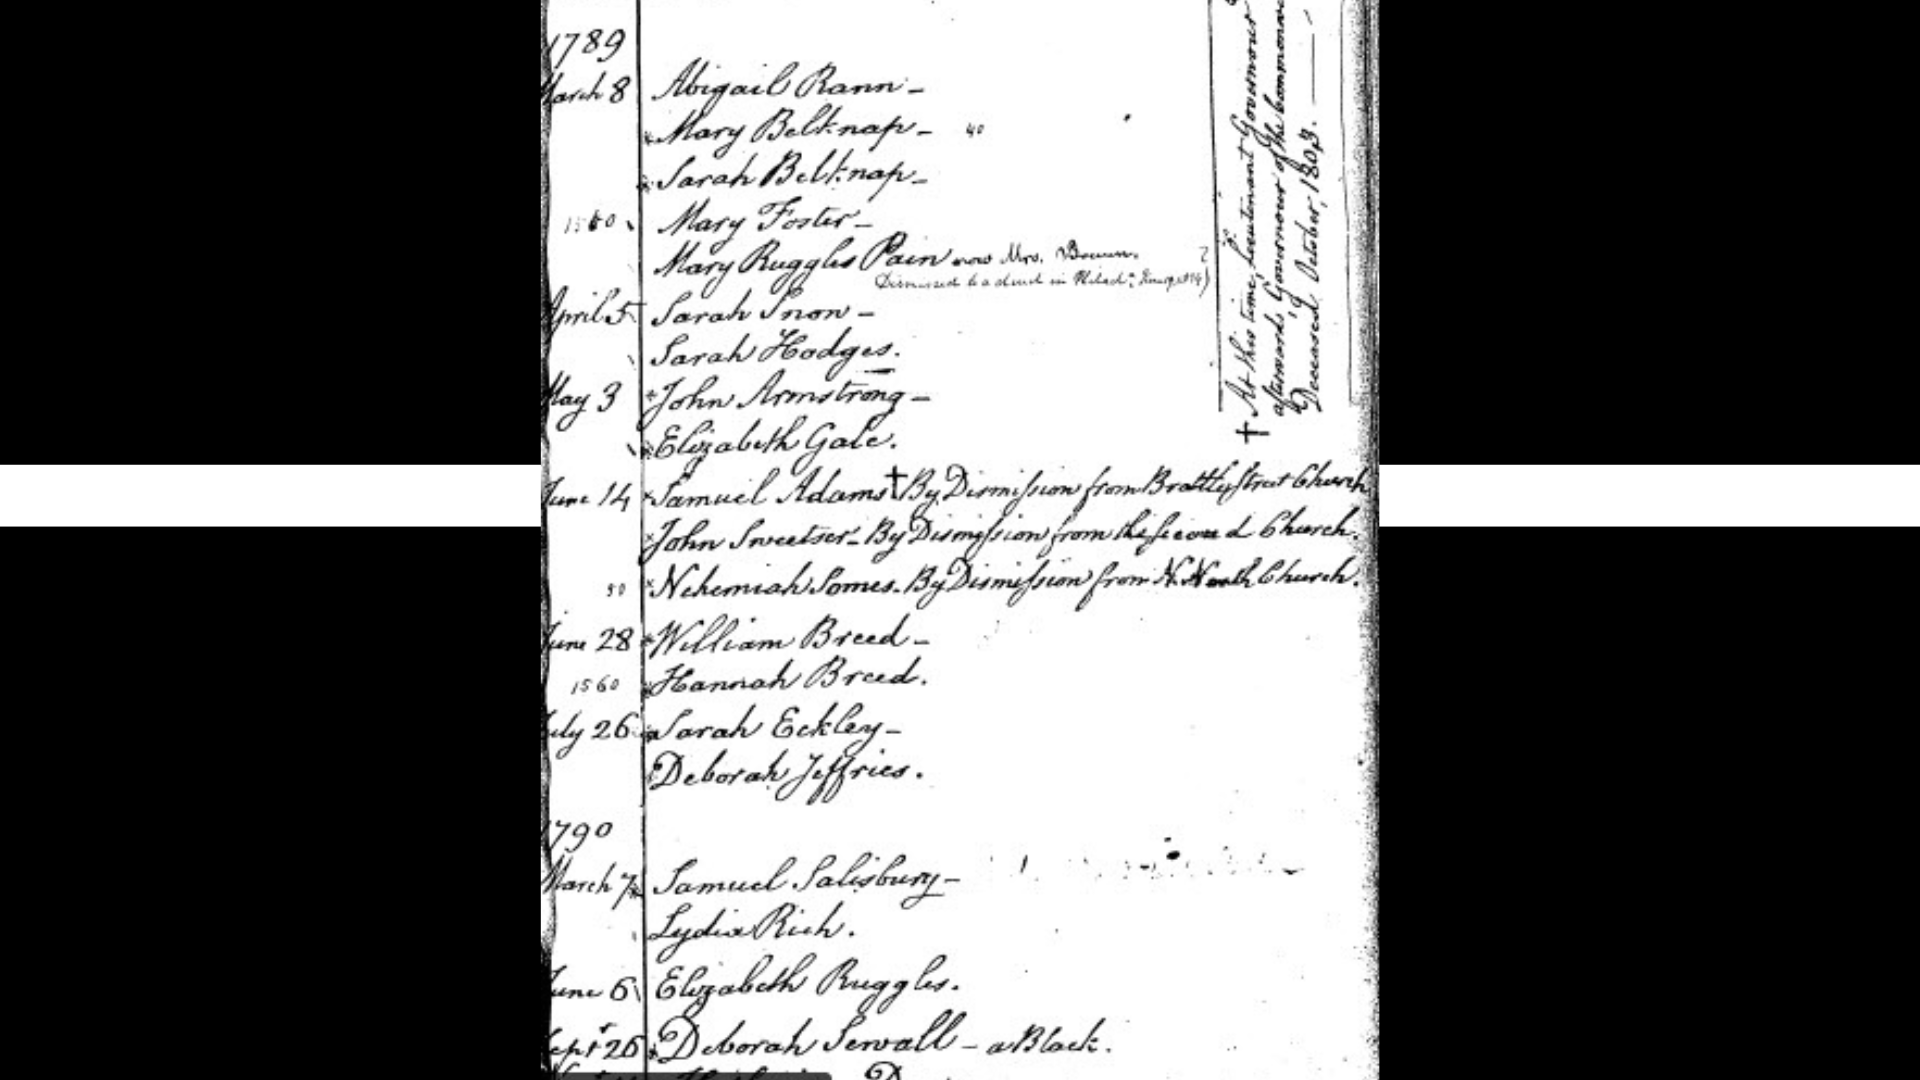 1789
March 8 Abigail Rann -
* Mary Belknap - 40
* Sarah Belknap -
1550 Mary Foster -
Mary Ruggles Pain now Mrs. Bowen.
Dismissed to a church in
April 5 Sarah Snow -
Sarah Hodges.
May 3 * John Armstrong -
* Elizabeth Gale.
June 14 * Samuel Adams † By Dismission from Brattle Street Church
* John Sweetser - By Dismission from the Second Church.
50 * Nehemiah Somes - By Dismission from N. North Church.
June 28 * William Breed -
1560 * Hannah Breed.
July 26 * Sarah Eckley -
Deborah Jeffries.
1790
March 7 * Samuel Salisbury -
Lydia Rich.
June 6 Elizabeth Ruggles.
Sept 26 * Deborah Sewall - a Black.
† At this time, Lieutenant Governour
afterwards Governour of the Commonwe
Deceased October, 1803. —